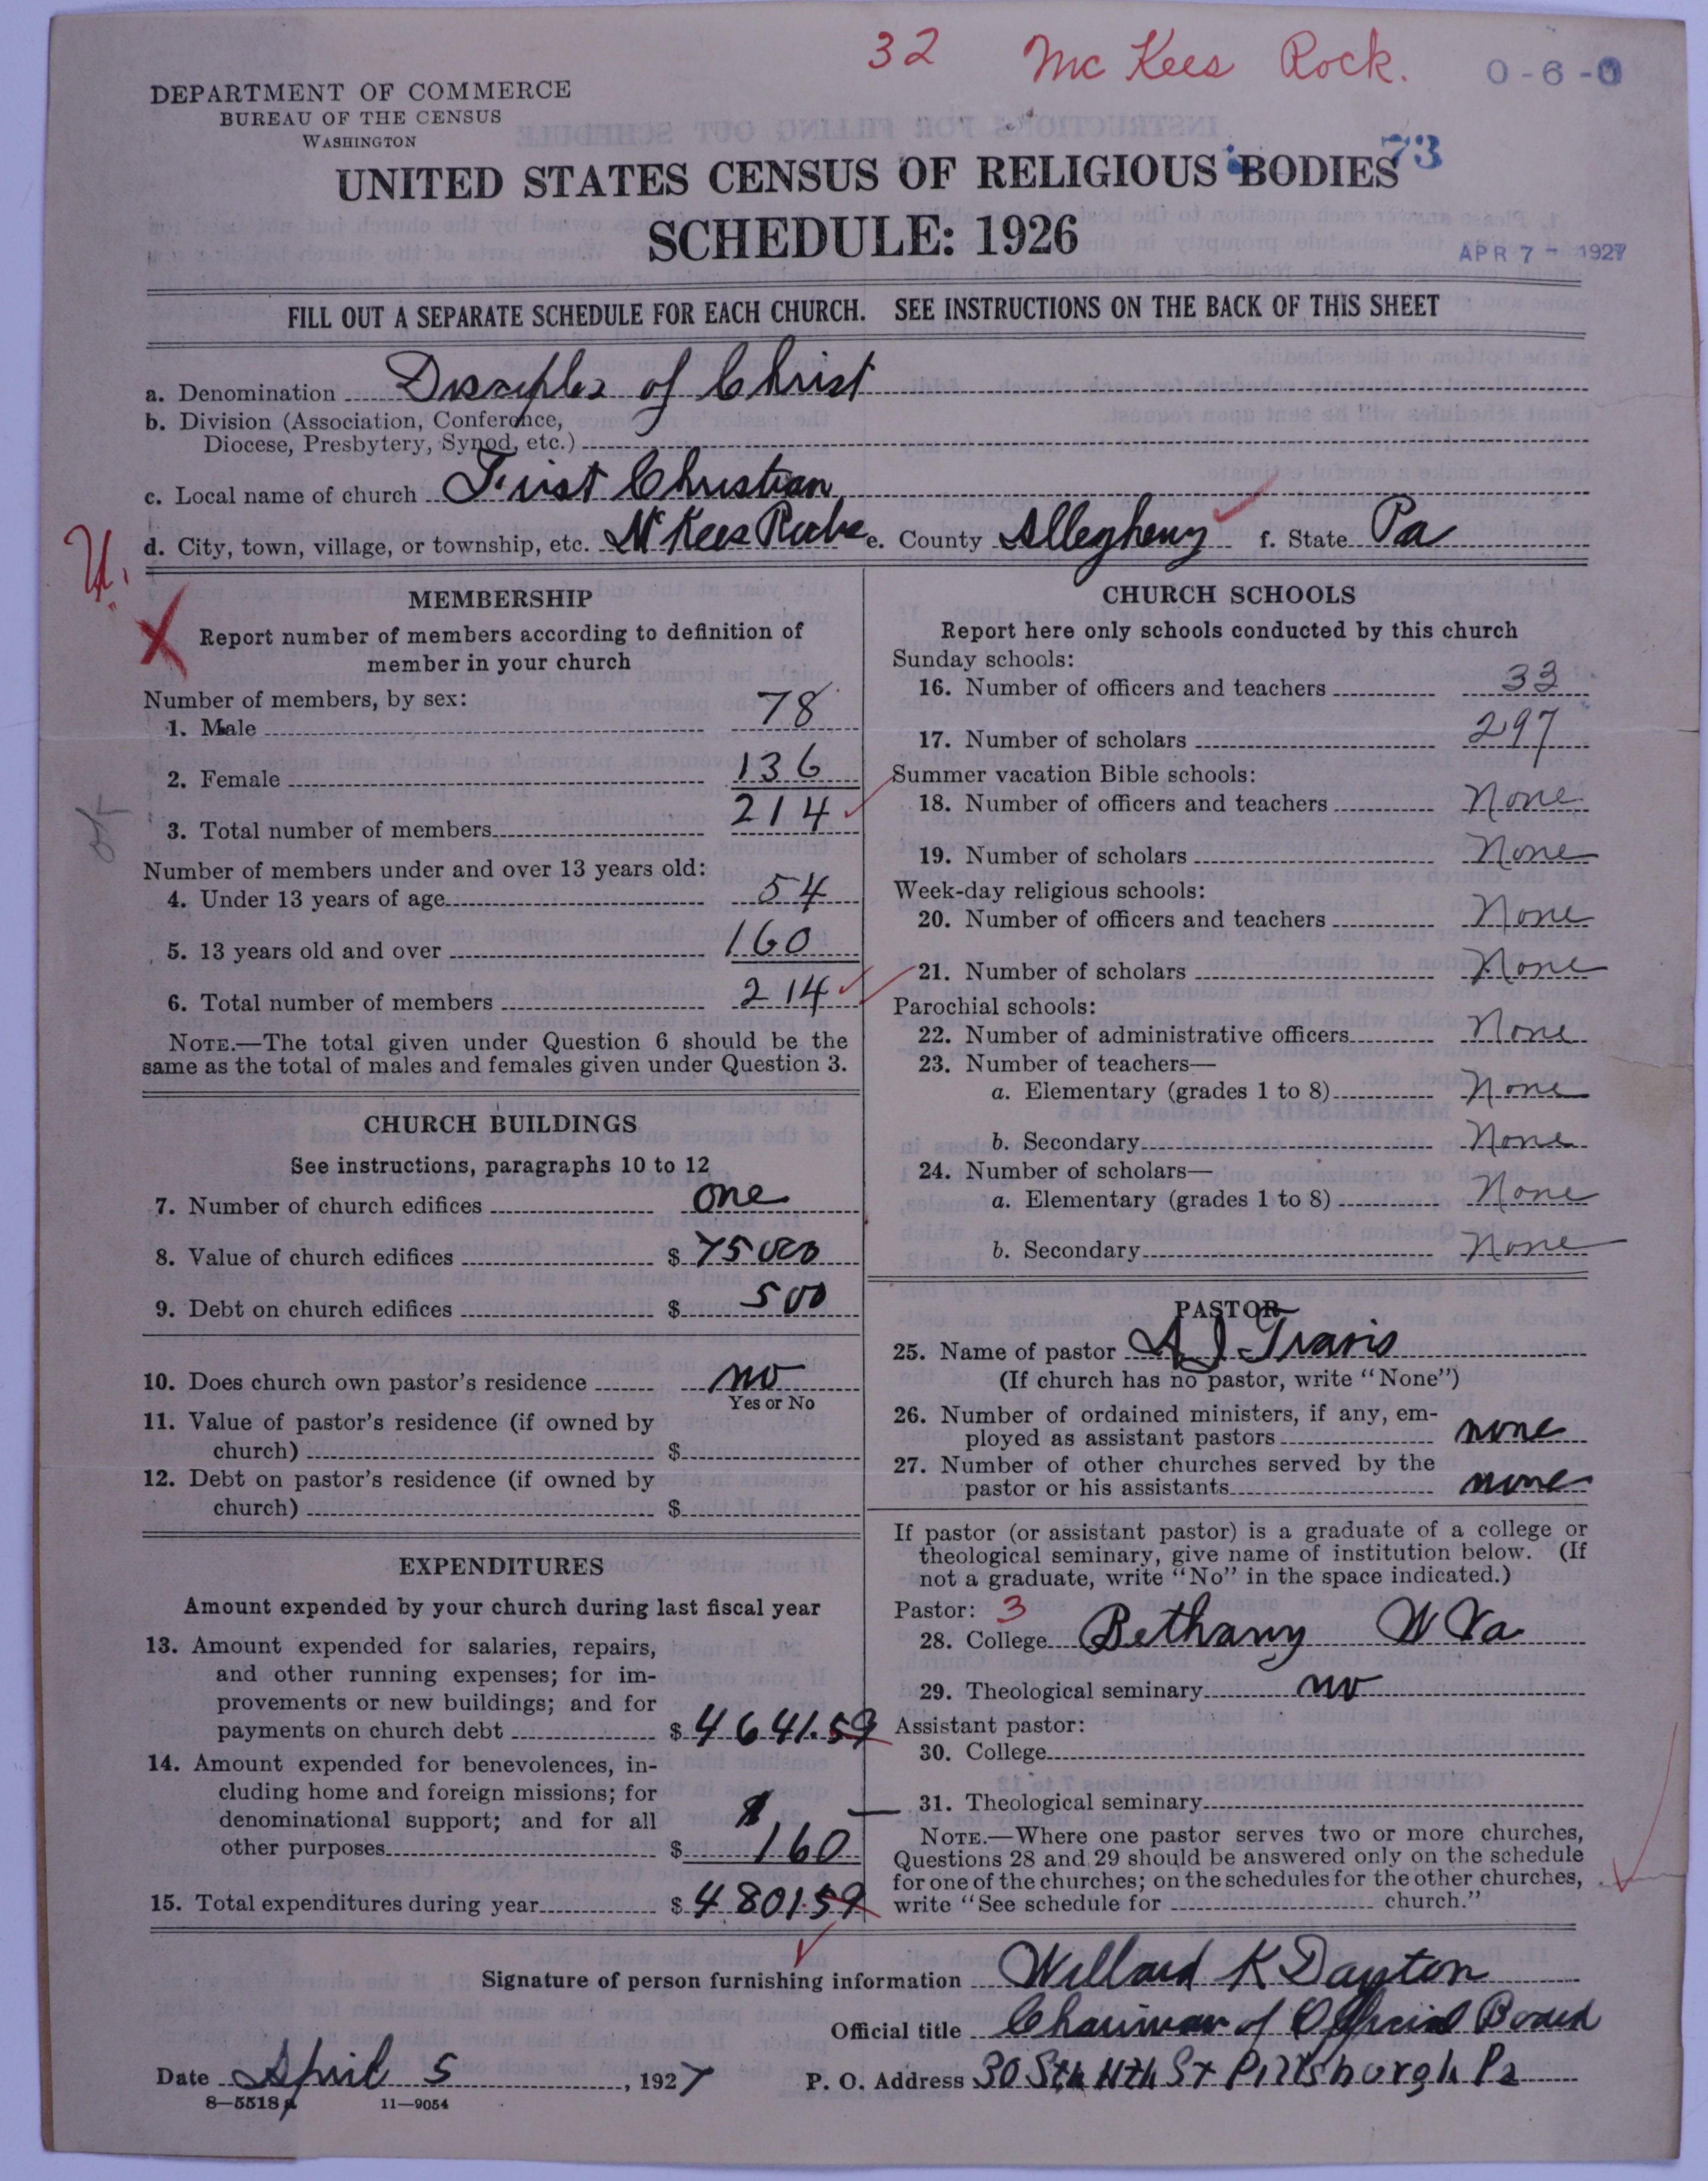 32 Mc Kees Rock. 0-6-0
DEPARTMENT OF COMMERCE
BUREAU OF THE CENSUS
WASHINGTON
73
UNITED STATES CENSUS OF RELIGIOUS BODIES
SCHEDULE: 1926
APR 7 - 1927
FILL OUT A SEPARATE SCHEDULE FOR EACH CHURCH. SEE INSTRUCTIONS ON THE BACK OF THIS SHEET
a. Denomination Disciples of Christ
b. Division (Association, Conference,
Diocese, Presbytery, Synod, etc.)
c. Local name of church First Christian
d. City, town, village, or township, etc. McKees Rocks e. County Allegheny f. State Pa
MEMBERSHIP
Report number of members according to definition of
member in your church
Number of members, by sex:
1. Male 78
2. Female 136
3. Total number of members 214
ok
Number of members under and over 13 years old:
4. Under 13 years of age 54
5. 13 years old and over 160
6. Total number of members 214
NOTE.—The total given under Question 6 should be the
same as the total of males and females given under Question 3.
CHURCH BUILDINGS
See instructions, paragraphs 10 to 12
7. Number of church edifices one
8. Value of church edifices $ 75000
9. Debt on church edifices $ 500
10. Does church own pastor's residence no
Yes or No
11. Value of pastor's residence (if owned by
church) $
12. Debt on pastor's residence (if owned by
church) $
EXPENDITURES
Amount expended by your church during last fiscal year
13. Amount expended for salaries, repairs,
and other running expenses; for im-
provements or new buildings; and for
payments on church debt $ 4641.59
14. Amount expended for benevolences, in-
cluding home and foreign missions; for
denominational support; and for all
other purposes $ 160
15. Total expenditures during year $ 4801.59
CHURCH SCHOOLS
Report here only schools conducted by this church
Sunday schools:
16. Number of officers and teachers 33
17. Number of scholars 297
Summer vacation Bible schools:
18. Number of officers and teachers None
19. Number of scholars None
Week-day religious schools:
20. Number of officers and teachers None
21. Number of scholars None
Parochial schools:
22. Number of administrative officers None
23. Number of teachers—
a. Elementary (grades 1 to 8) None
b. Secondary None
24. Number of scholars—
a. Elementary (grades 1 to 8) None
b. Secondary None
PASTOR
25. Name of pastor A J Travis
(If church has no pastor, write "None")
26. Number of ordained ministers, if any, em-
ployed as assistant pastors none
27. Number of other churches served by the
pastor or his assistants none
If pastor (or assistant pastor) is a graduate of a college or
theological seminary, give name of institution below. (If
not a graduate, write "No" in the space indicated.)
Pastor: 3
28. College Bethany W Va
29. Theological seminary no
Assistant pastor:
30. College
31. Theological seminary
NOTE.—Where one pastor serves two or more churches,
Questions 28 and 29 should be answered only on the schedule
for one of the churches; on the schedules for the other churches,
write "See schedule for church."
Signature of person furnishing information Willard K Dayton
Official title Chairman of Official Board
Date April 5, 1927 P. O. Address 30 Sth 11th St Pittsburgh Pa
8—5518a 11—9054